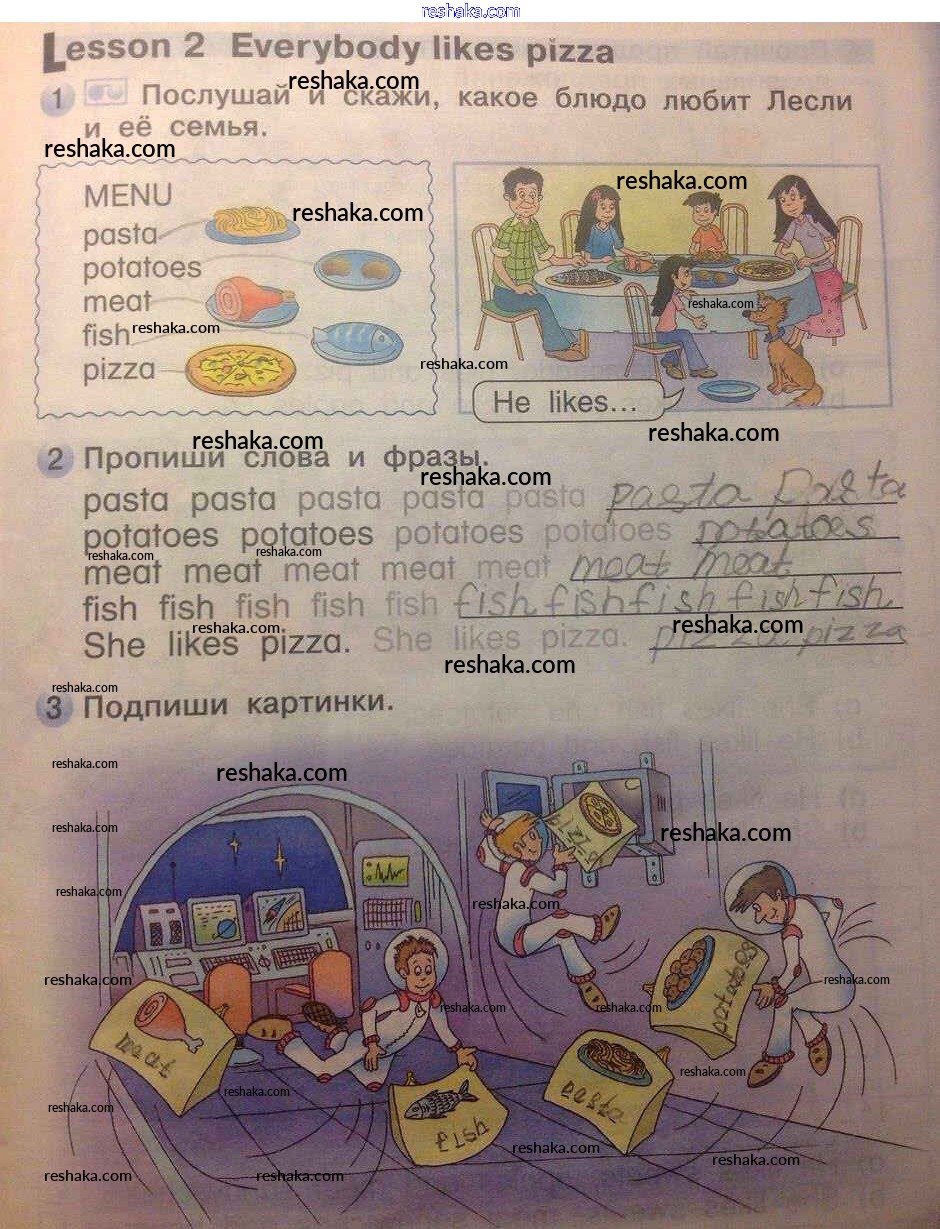 reshaka.com
Lesson 2 Everybody likes pizza
reshaka.com
1 Послушай и скажи, какое блюдо любит Лесли
и её семья.
reshaka.com
reshaka.com
MENU
reshaka.com
pasta
potatoes
meat
reshaka.com
fish
reshaka.com
reshaka.com
pizza
He likes...
reshaka.com
reshaka.com
2 Пропиши слова и фразы.
reshaka.com
pasta pasta pasta pasta pasta pasta pasta
potatoes potatoes potatoes potatoes potatoes
reshaka.com
reshaka.com
meat meat meat meat meat meat meat
fish fish fish fish fish fish fish fish fish fish
reshaka.com
reshaka.com
She likes pizza. She likes pizza. pizza pizza
reshaka.com
reshaka.com
3 Подпиши картинки.
reshaka.com
reshaka.com
reshaka.com
pizza
reshaka.com
reshaka.com
reshaka.com
reshaka.com
potatoes
reshaka.com
reshaka.com
reshaka.com
reshaka.com
meat
reshaka.com
reshaka.com
pasta
reshaka.com
fish
reshaka.com
reshaka.com
reshaka.com
reshaka.com